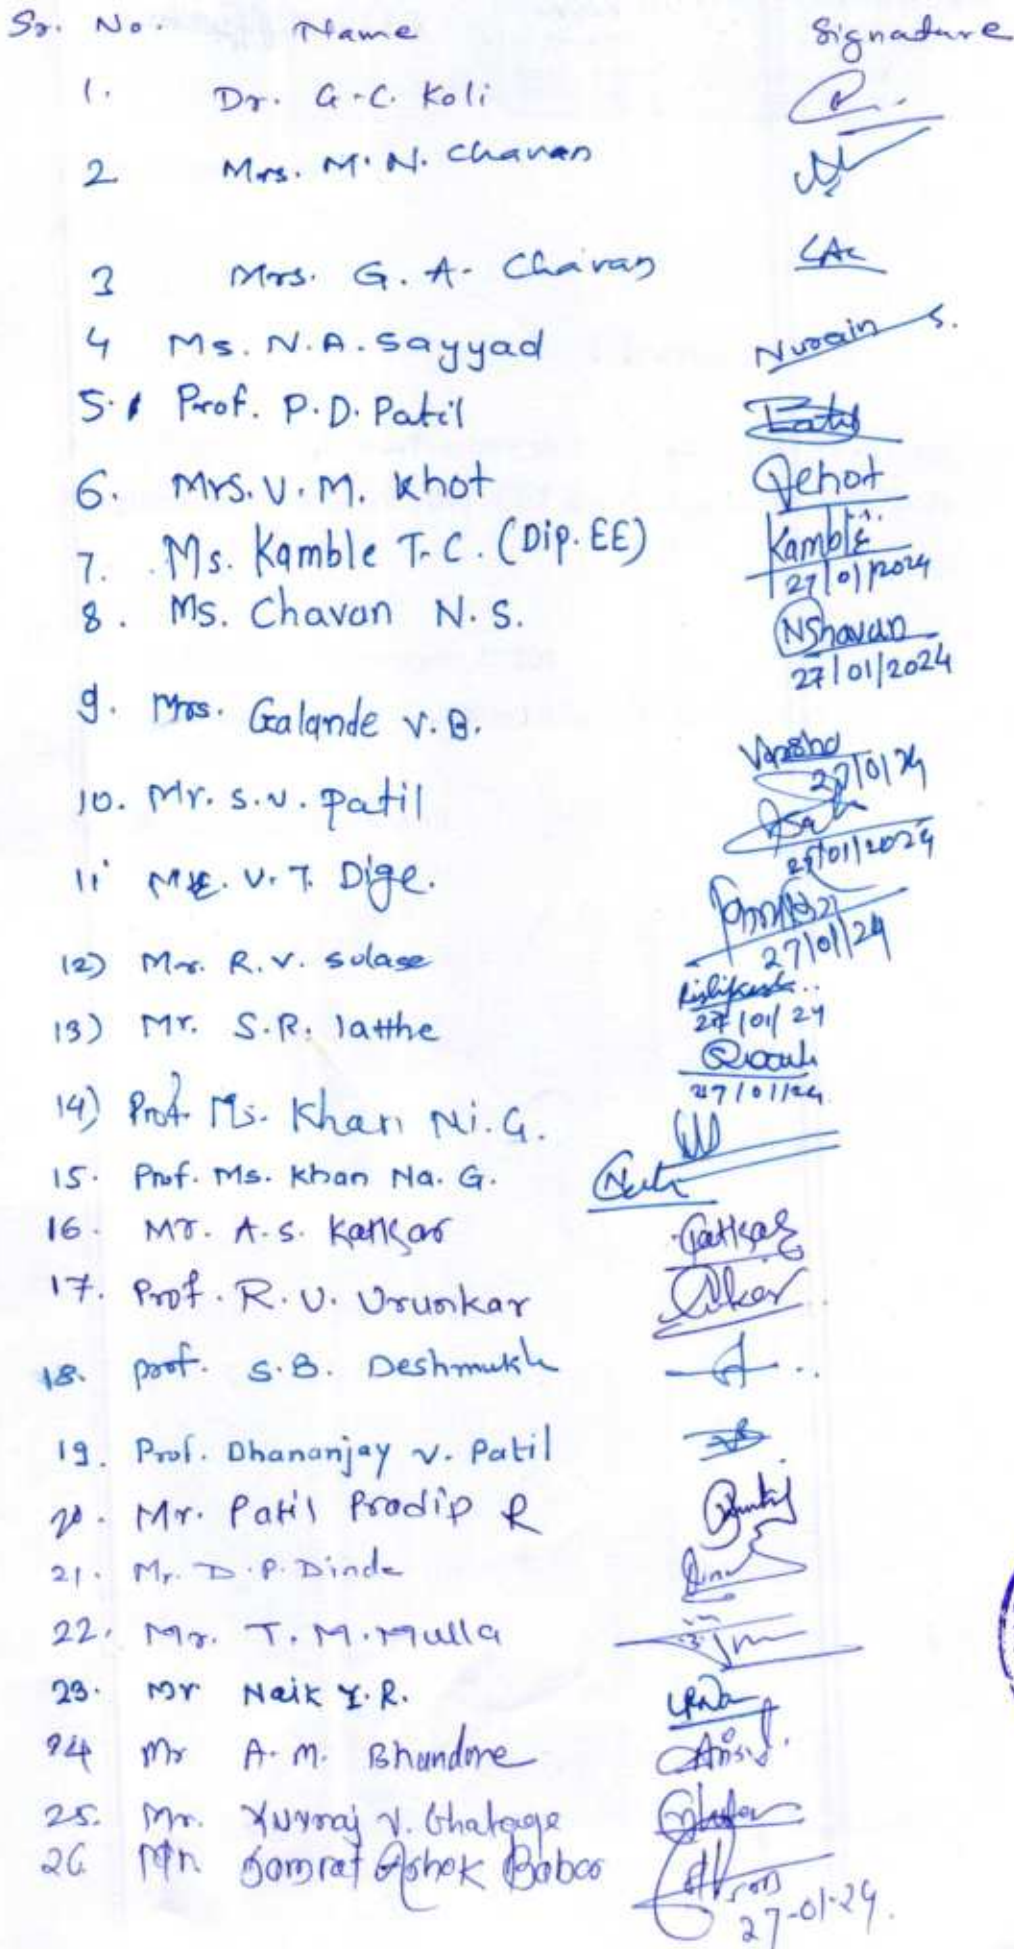 Sr. No. Name Signature
1. Dr. G.C. Koli
2 Mrs. M. N. Chavan
3 Mrs. G. A. Chavan
4 Ms. N.A. Sayyad Nurain S.
5. Prof. P.D. Patil Patil
6. Mrs. V. M. Khot
7. Ms. Kamble T.C. (Dip. EE) Kamble
27/01/2024
8. Ms. Chavan N.S. NShavan
27/01/2024
9. Mrs. Galande V.B.
10. Mr. S.N. Patil
11 V.T. Dige.
27/01/24
12) Mr. R.V. Sulase
27/01/24
13) Mr. S.R. latthe
27/01/24
14) Prof. Ms. Khan Ni. G.
15. Prof. Ms. Khan Na. G.
16. Mr. A.S. Katkar
17. Prof. R.U. Urunkar
18. Prof. S.B. Deshmukh
19. Prof. Dhananjay V. Patil
20. Mr. Patil Pradip R
21. Mr. D.P. Dinde
22. Mr. T.M. Mulla
23. Mr Naik Y.R.
24 Mr A.M. Bhandare
25. Mr. Yuvraj V. Ghatage
26 Mr. Samrat Ashok Babar
27-01-24.